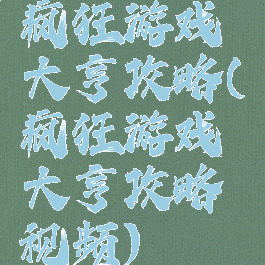 疯狂游戏
大亨攻略(
疯狂游戏
大亨攻略
视频)